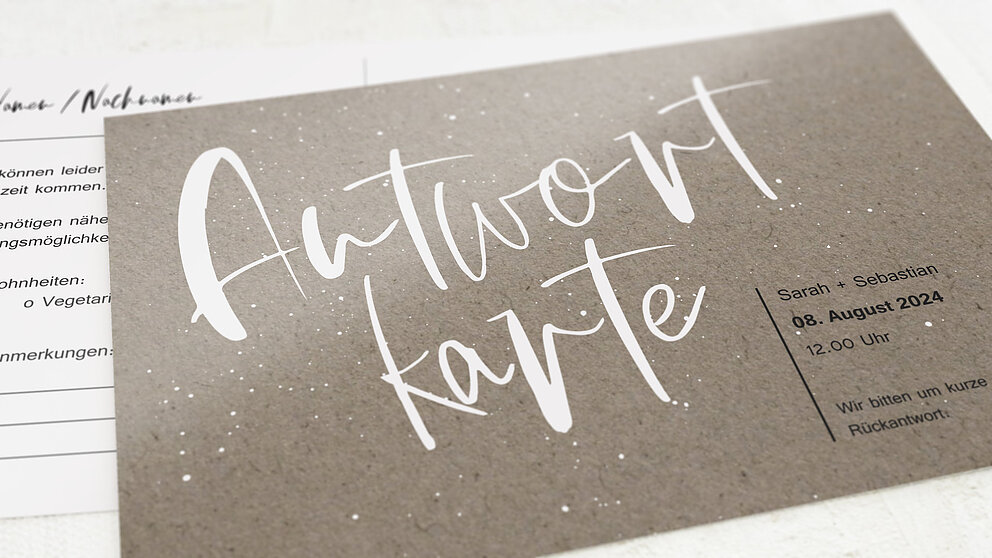 /Nachnamen
können leider
zeit kommen.
ohnheiten:
o Vegetari
nmerkungen:
Antwort
karte
Sarah + Sebastian
08. August 2024
12.00 Uhr
Wir bitten um kurze
Rückantwort.